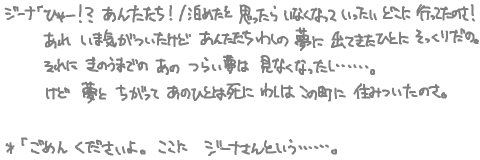 ジーナ「ひゃー!? あんたたち! / 泊めたと 思ったら いなくなって いったい どこに 行ってたのさ!
あれ いま気がついたけど あんたたち わしの 夢に 出てきたひとに そっくりだの。
それに きのうまでの あの つらい夢は 見なくなったし……。
けど 夢と ちがって あのひとは死に わしは この町に 住みついたのさ。
*「ごめん くださいよ。 ここに ジーナさんという……。